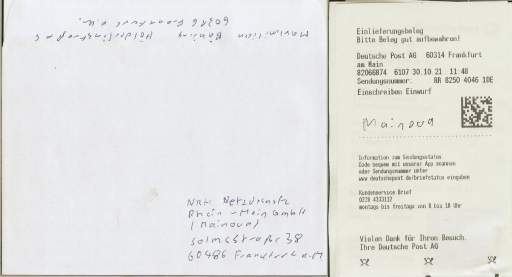 Maximilian Bähring Hölderlinstraße 4
60316 Frankfurt a.M.
NRM Netzdienste
Rhein-Main GmbH
(Mainova)
Solmsstraße 38
60486 Frankfurt a.M
Einlieferungsbeleg
Bitte Beleg gut aufbewahren!
Deutsche Post AG 60314 Frankfurt
am Main
82066874 6107 30.10.21 11:48
Sendungsnummer: RR 8250 4046 1DE
Einschreiben Einwurf
Mainova
Information zum Sendungsstatus
Code bequem mit unserer App scannen
oder Sendungsnummer unter
www.deutschepost.de/briefstatus eingeben
Kundenservice Brief
0228 4333112
montags bis freitags von 8 bis 18 Uhr
Vielen Dank für Ihren Besuch.
Ihre Deutsche Post AG